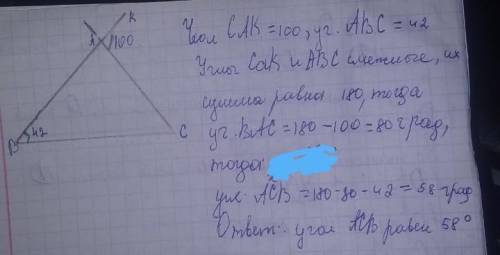 K
A
100
42
B
C
Угол CAK=100, уг. ABC=42
Углы CaK и ABC смежные, их
сумма равна 180, тогда
уг. BAC=180-100=80 град,
тогда
угл. ACB=180-80-42=58 град
Ответ: угол ACB равен 58°